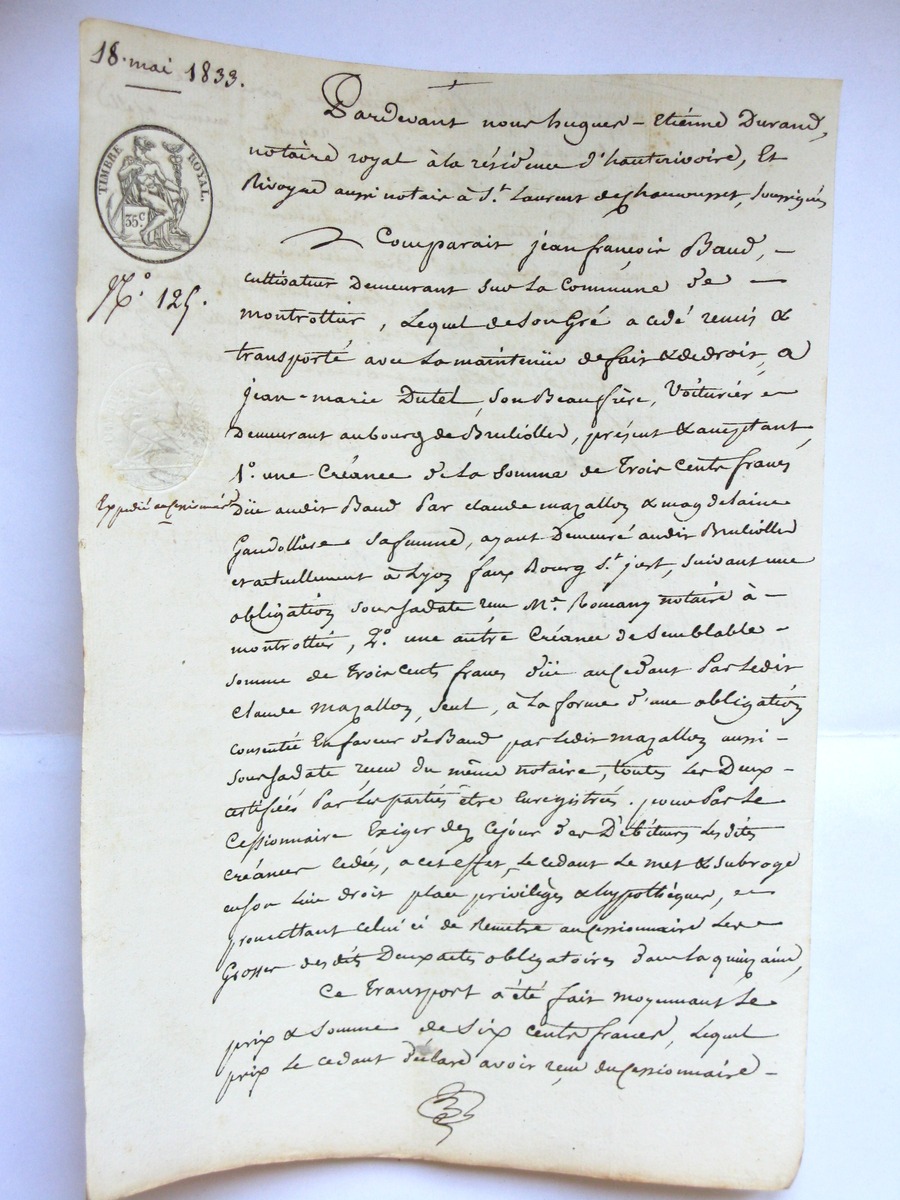 18. mai 1833.
Pardevant nous hugues-Etiénne Durand,
notaire royal à la résidence d'hauterivoire, Et
Rivoyre aussi notaire à St. Laurent de chamousset, soussignés
TIMBRE ROYAL.
35c.
Comparait jean françois Baud, -
cultivateur Demeurant sur la Commune de -
N.o 125.
montrottier, Lequel de son Gré a cedé remis &
transporté avec la maintenüe de fait & de droit, a
jean-marie Dutel, son Beaufrère, Voiturier
Demeurant au bourg de Brulliolles, présent & acceptant,
1o. une Créance de la somme de Trois Cents francs
Expedié au Cessionnaire
Düe audit Baud Par claude mazalloz & magdelaine
Gandollière sa femme, ayant Demeuré audit Brulliolles
et actuellement à Lyoz faux Bourg St. just, suivant une
obligatioz sous sa date reçue Me. Romany notaire à -
montrottier, 2o. une autre Créance de semblable -
somme de Trois Cents francs düe au Cedant Par Ledit
Claude mazalloz, seul, à la forme d'une obligatioz
consentie En faveur de Baud par Ledit mazalloz aussi -
sous sa date reçu du même notaire, toutes les Deux -
certifiées Par les parties être Enregistrés. pour Par le
Cessionnaire Exiger dez Cejour des Débiteurs Lesdites
Créances Cedées, a cet effet, Le cedant Le met & subroge
en son Lieu droit place privilèges & hypothéques, en
promettant Celui ci de Remettre au Cessionnaire Les
Grosses desdits Deux actes obligatoires dans La quinzaine,
Ce Transport a été fait moyennant Le
prix & Somme de Six Cents francs, Lequel
prix Le cedant déclare avoir reçu du Cessionnaire -